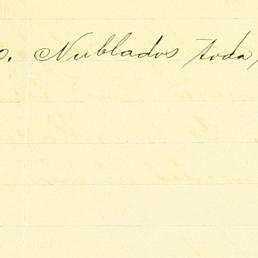 o. Nublados toda